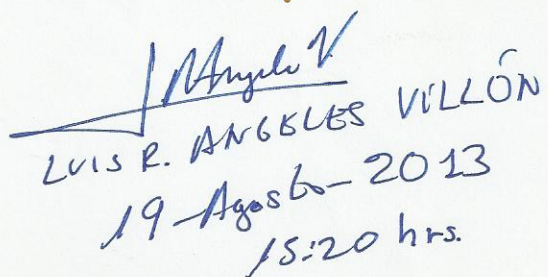 LUIS R. ANGELES VILLÓN
19-Agosto-2013
15:20 hrs.